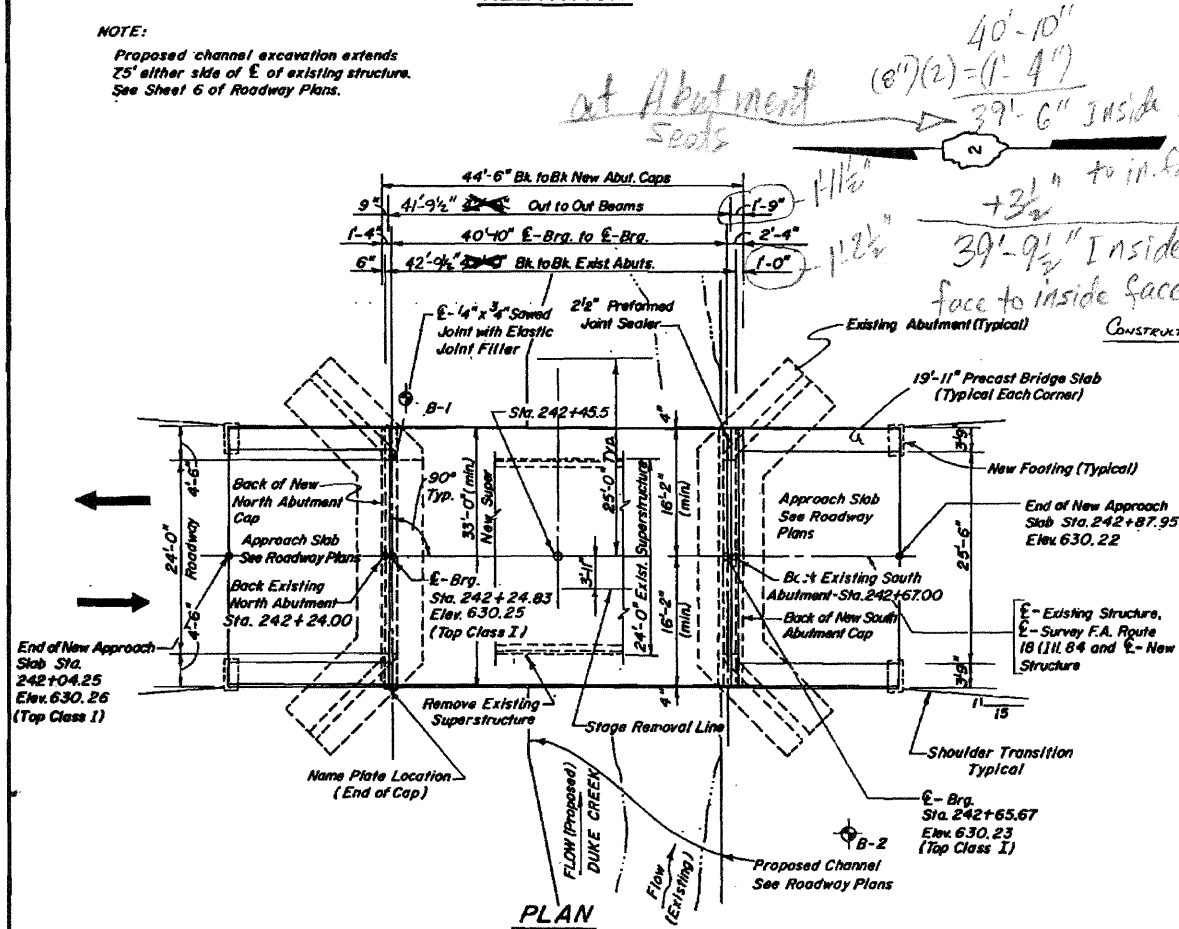 NOTE:
Proposed channel excavation extends
75' either side of ℄ of existing structure.
See Sheet 6 of Roadway Plans.
40'-10"
(8")(2) = (1'-4")
39'-6" Inside
at Abutment
Seats
2
to in. fa
+3 1/2"
39'-9 1/2" Inside
face to inside face
44'-6" Bk. to Bk. New Abut. Caps
9"
41'-9 1/2"
Out to Out Beams
1'-9"
1'-11 1/2"
1'-4"
40'-10" ℄-Brg. to ℄-Brg.
2'-4"
6"
42'-9 1/2"
Bk. to Bk. Exist. Abuts.
1'-0"
1'-2 1/2"
℄-1/4" x 3/4" Sawed
Joint with Elastic
Joint Filler
2 1/2" Preformed
Joint Sealer
Existing Abutment (Typical)
CONSTRUCT
19'-11" Precast Bridge Slab
(Typical Each Corner)
B-1
Sta. 242+45.5
4"
3'-9"
New Footing (Typical)
4'-6"
24'-0"
Roadway
4'-6"
Back of New
North Abutment
Cap
90°
Typ.
33'-0" (min.)
New Super
25'-0" Typ.
24'-0" Exist. Superstructure
16'-2"
(min)
Approach Slab
See Roadway
Plans
End of New Approach
Slab Sta. 242+87.95
Elev. 630.22
Approach Slab
See Roadway Plans
25'-6"
Back Existing
North Abutment
Sta. 242+24.00
℄-Brg.
Sta. 242+24.83
Elev. 630.25
(Top Class I)
3'-11"
16'-2"
(min)
Back Existing South
Abutment-Sta. 242+67.00
Back of New South
Abutment Cap
℄-Existing Structure,
℄-Survey F.A. Route
18 (Ill. 84 and ℄-New
Structure
End of New Approach
Slab Sta.
242+04.25
Elev. 630.26
(Top Class I)
Remove Existing
Superstructure
Stage Removal Line
4"
3'-9"
1'
15
Shoulder Transition
Typical
Name Plate Location
(End of Cap)
℄-Brg.
Sta. 242+65.67
Elev. 630.23
(Top Class I)
B-2
FLOW (Proposed)
DUKE CREEK
Flow
(Existing)
Proposed Channel
See Roadway Plans
PLAN